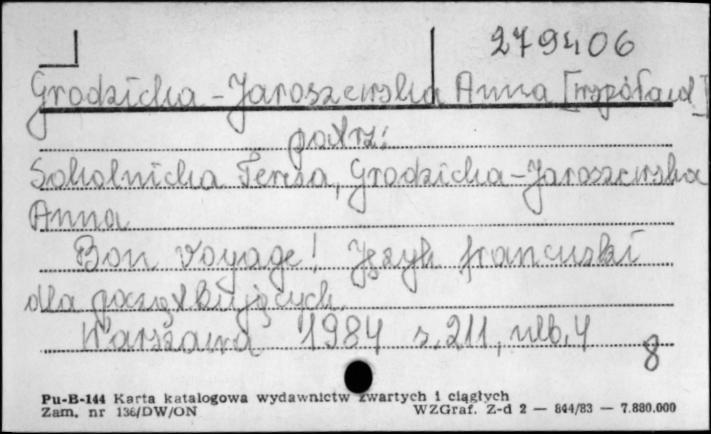 279406
Grodzicka-Jaroszewska Anna [współaut]
patrz:
Sokolnicka Teresa, Grodzicka-Jaroszewska
Anna
Bon voyage! Język francuski
dla początkujących.
Warszawa 1984 s. 211, nlb. 4
8
Pu-B-144 Karta katalogowa wydawnictw zwartych i ciągłych
Zam. nr 136/DW/ON WZGraf. Z-d 2 — 844/83 — 7.880.000